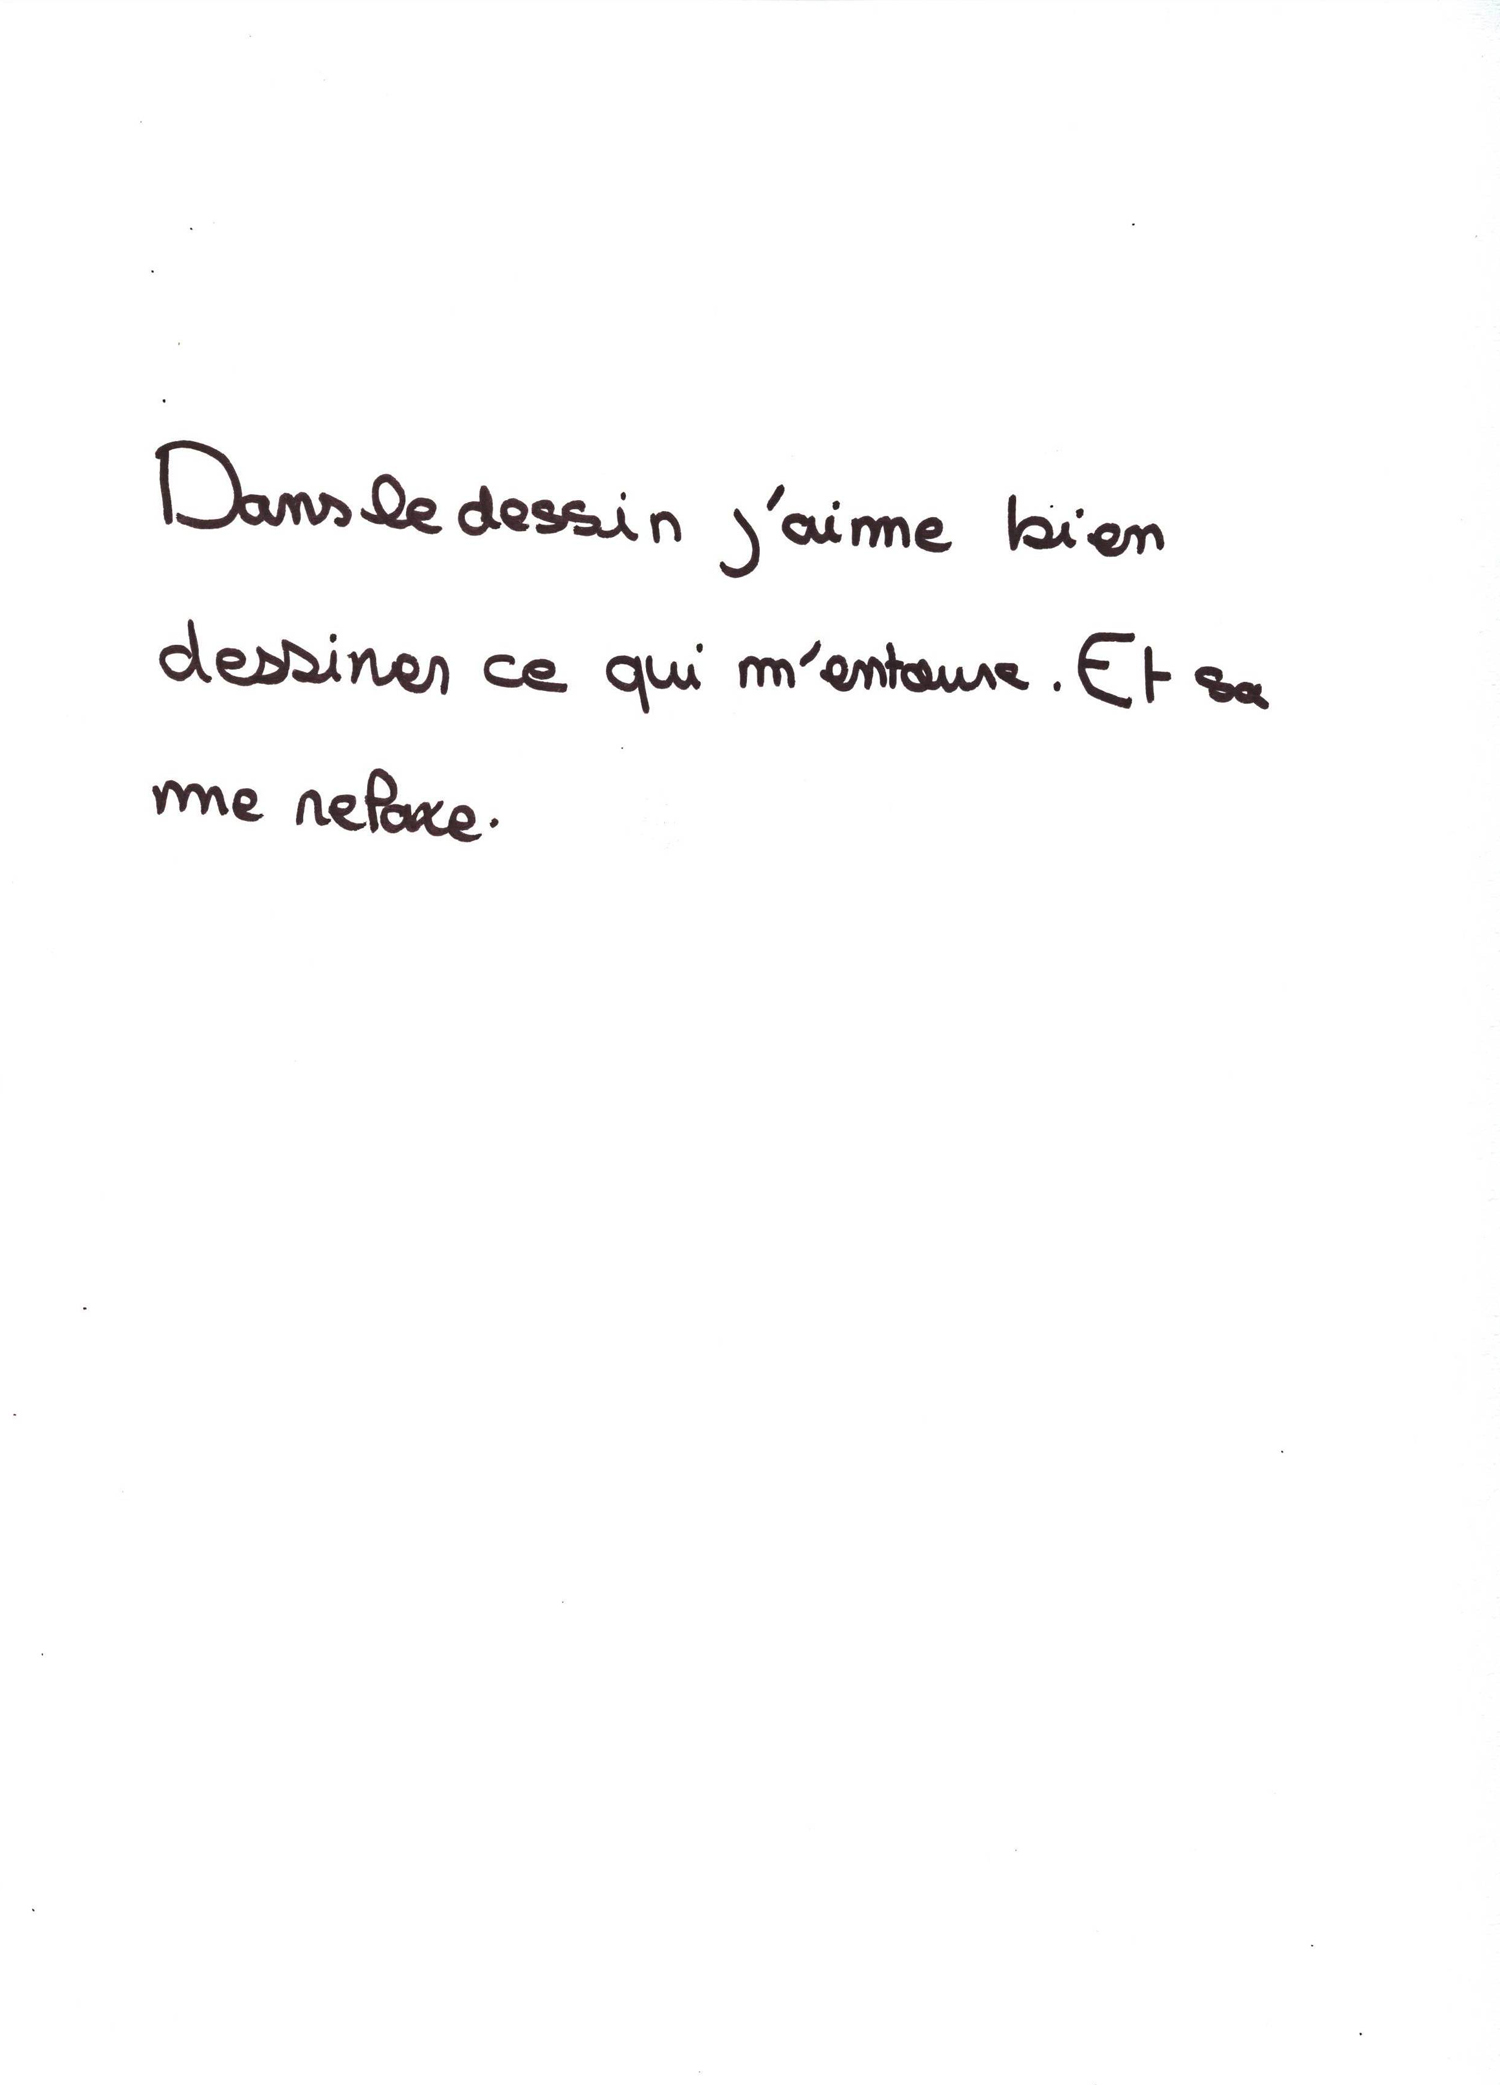 Dans le dessin j'aime bien
dessiner ce qui m'entoure. Et sa
me relaxe.